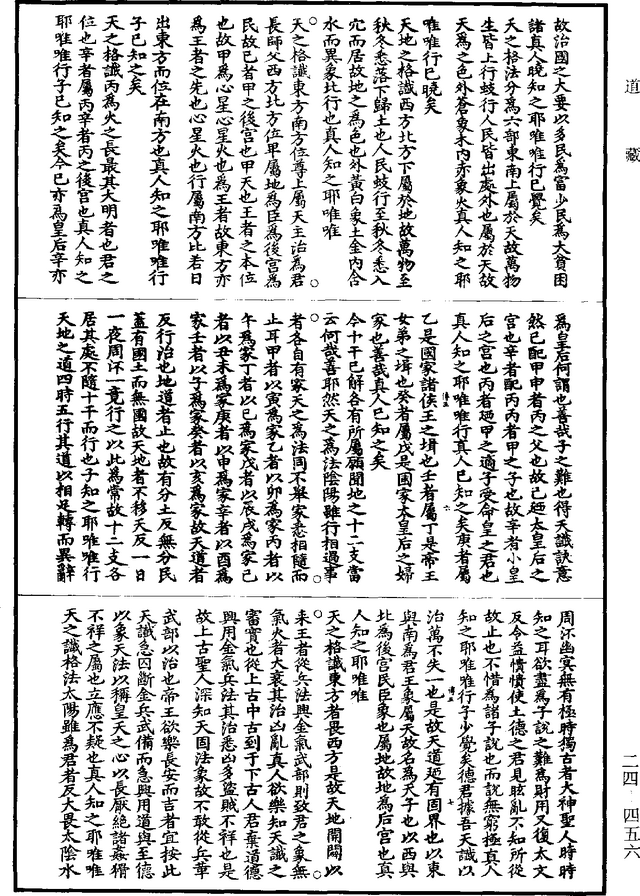 道藏
故治國之大要以多民為富少民為大貧困
諸真人曉知之耶唯唯行已覺矣
天之格法分為六部東南上屬於天故萬物
生皆上行蚑行人民皆出處外也屬於天故
天為之色外蒼象木內亦象火真人知之耶
唯唯行已曉矣
天地之格讖西方北方下屬於地故萬物至
秋冬悉落下歸土也人民蚑行至秋冬悉入
穴而居故地之為色也外黃白象土金內含
水而異象比行也真人知之耶唯唯
天之格讖東方南方位尊上屬天主治為君
長師父西方北方位卑屬地為臣為後宮為
民故已者甲之後宮也甲天也王者之本位
也故甲為心星心星火也為王者故東方亦
為王者之先也心星火也行屬南方比若日
出東方而位在南方也真人知之耶唯唯行
子已知之矣
天之格讖丙為火之長最其大明者也君之
位也辛者屬丙辛者丙之後宮也真人知之
耶唯唯行子已知之矣今已亦為皇后辛亦
為皇后何謂也善哉子之難也得天讖訣意
然已配甲甲者丙之父也故已迺太皇后之
宮也辛者配丙丙者甲之子也故辛者小皇
后之宮也丙者迺甲之適子受命皇之君也
真人知之耶唯唯行真人已知之矣庚者屬
乙是國家諸侯王之壻也壬者屬丁是帝王
女弟之壻也癸者屬戊是國家太皇后之婦
家也善哉真人已知之矣
今十干已解各有所屬願聞地之十二支當
云何哉善耶然天之為法陰陽雖行相過事
者各自有家天之為法同不舉家悉相隨而
止耳甲者以寅為家乙者以卯為家丙者以
午為家丁者以巳為家戊者以辰戌為家己
者以丑未為家庚者以申為家辛者以酉為
家壬者以子為家癸者以亥為家故天道者
反行治也地道者止也故有分土反無分民
蓋有國土而無國故天地者不移天反一日
一夜周帀一竟行之以此為常故十二支各
居其處不隨十干而行也子知之耶唯唯行
天地之道四時五行其道以相足轉而異辭
周帀幽冥無有極時獨古者大神聖人時時
知之耳欲盡為子說之難為財用又復太文
反令益憒憒使土德之君見眩亂不知所從
故止也不惜為諸子說也而說無窮極真人
知之耶唯唯行子少覺矣德君據吾天讖以
治萬不失一也是故天道迺有固界也以東
與南為君王象屬天故名為天子也以西與
北為後宮民臣象也屬地故地為后宮也真
人知之耶唯唯
天之格讖東方者畏西方是故天地開闢以
來王者從兵法興金氣武部則致君之象無
氣火者大衰其治凶亂真人欲樂知天讖之
審實也從上古中古到于下古人君棄道德
興用金氣兵法其治悉凶多盜賊不祥也是
故上古聖人深知天固法象故不敢從兵革
武部以治也帝王欲樂長安而吉者宜按此
天讖急囚斷金兵武備而急興用道與至德
以象天法以稱皇天之心以長厭絕諸姦猾
不祥之屬也立應不疑也真人知之耶唯唯
天之讖格法太陽雖為君者反大畏太陰水
二四-四五六